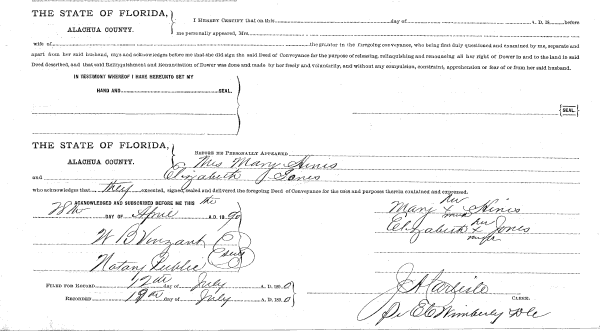 THE STATE OF FLORIDA,
ALACHUA COUNTY.
I HEREBY CERTIFY that on this day of A. D. 18 before
me personally appeared, Mrs.
wife of the grantor in the foregoing conveyance, who being first duly questioned and examined by me, separate and
apart from her said husband, says and acknowledges before me that she did sign the said Deed of Conveyance for the purpose of releasing, relinquishing and renouncing all her right of Dower in and to the land in said
Deed described, and that said Relinquishment and Renunciation of Dower was done and made by her freely and voluntarily, and without any compulsion, constraint, apprehension or fear of or from her said husband.
IN TESTIMONY WHEREOF I HAVE HEREUNTO SET MY
HAND AND SEAL.
SEAL.
THE STATE OF FLORIDA,
ALACHUA COUNTY.
BEFORE ME PERSONALLY APPEARED
Mrs Mary Hinis
and Elizabeth Jones
who acknowledges that they executed, signed, sealed and delivered the foregoing Deed of Conveyance for the uses and purposes therein contained and expressed.
ACKNOWLEDGED AND SUBSCRIBED BEFORE ME THIS the
28th DAY OF April A.D. 1890
W B Vinzant
Notary Public
Mary her x mark Hinis
Elizabeth her x mark Jones
FILED FOR RECORD 12th day of July A.D. 1890
RECORDED 19th day of July A.D. 1890
J A Carlisle
CLERK.
Pr E C Wimberly DC